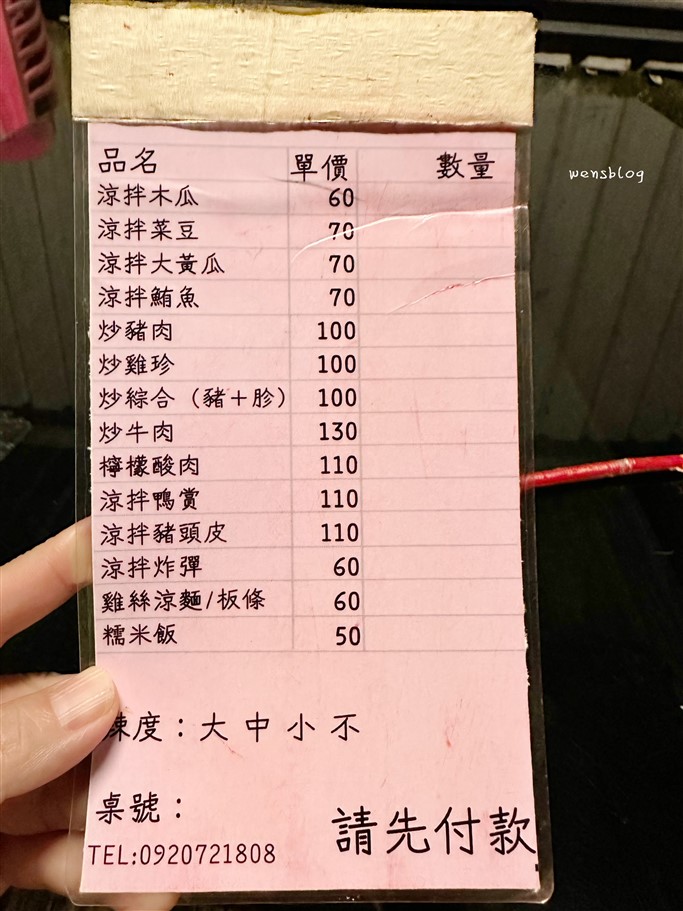 品名 單價 數量
wensblog
涼拌木瓜 60
涼拌菜豆 70
涼拌大黃瓜 70
涼拌鮪魚 70
炒豬肉 100
炒雞珍 100
炒綜合（豬＋胗） 100
炒牛肉 130
檸檬酸肉 110
涼拌鴨賞 110
涼拌豬頭皮 110
涼拌炸彈 60
雞絲涼麵/板條 60
糯米飯 50
度：大 中 小 不
桌號：
請先付款
TEL:0920721808